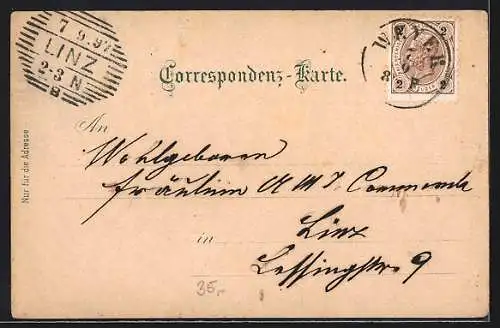 7 9 97
LINZ
2-3 N
8
WEYER
2 2
2 2
Correspondenz-Karte.
An
Nur für die Adresse
Wohlgeboren
Fräulein
Linz
in
Lessingstr 9
35,-